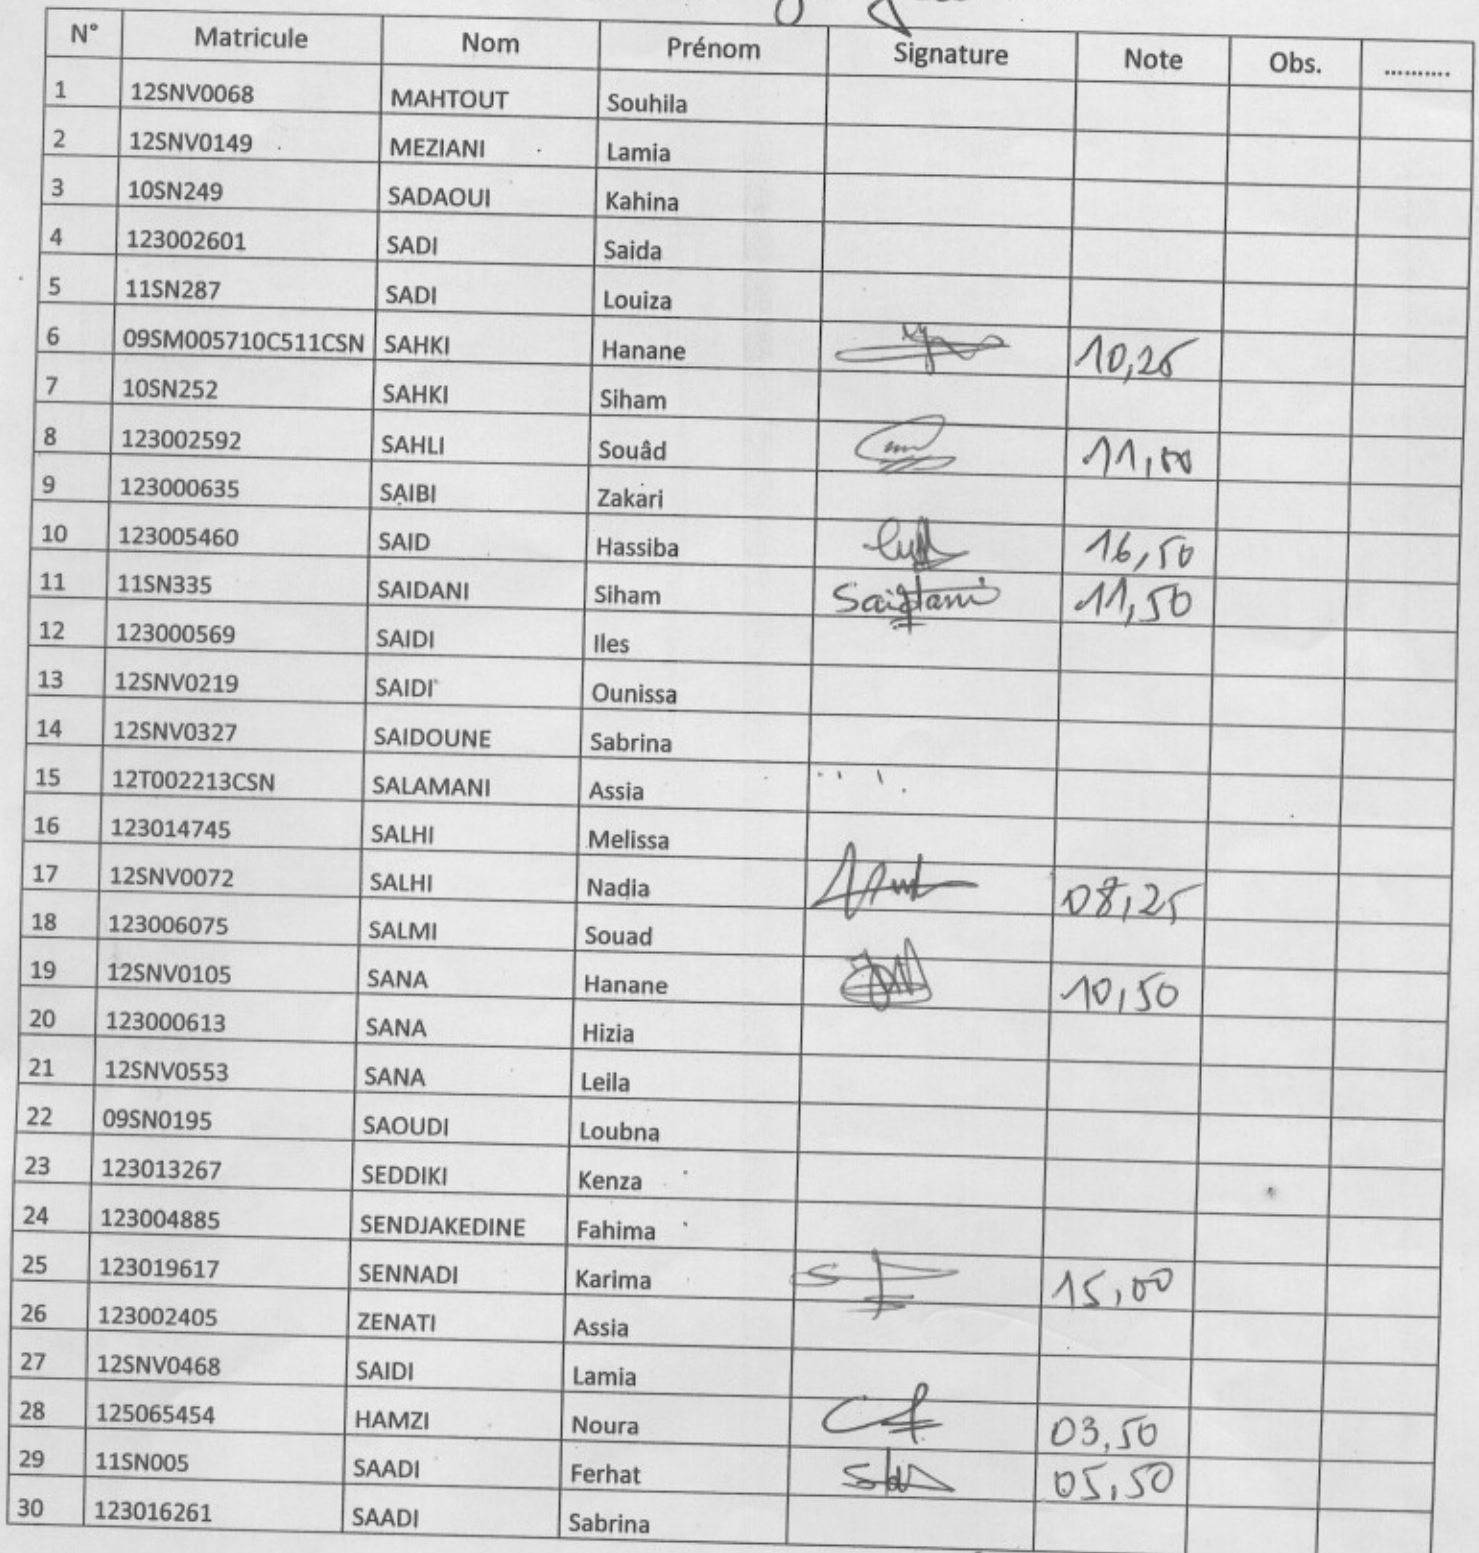 N° Matricule Nom Prénom Signature Note Obs. ..........
1 12SNV0068 MAHTOUT Souhila
2 12SNV0149 MEZIANI Lamia
3 10SN249 SADAOUI Kahina
4 123002601 SADI Saida
5 11SN287 SADI Louiza
6 09SM005710C511CSN SAHKI Hanane 10,25
7 10SN252 SAHKI Siham
8 123002592 SAHLI Souâd 11,00
9 123000635 SAIBI Zakari
10 123005460 SAID Hassiba 16,50
11 11SN335 SAIDANI Siham Saidani 11,50
12 123000569 SAIDI Iles
13 12SNV0219 SAIDI Ounissa
14 12SNV0327 SAIDOUNE Sabrina
15 12T002213CSN SALAMANI Assia
16 123014745 SALHI Melissa
17 12SNV0072 SALHI Nadia 08,25
18 123006075 SALMI Souad
19 12SNV0105 SANA Hanane 10,50
20 123000613 SANA Hizia
21 12SNV0553 SANA Leila
22 09SN0195 SAOUDI Loubna
23 123013267 SEDDIKI Kenza
24 123004885 SENDJAKEDINE Fahima
25 123019617 SENNADI Karima 15,00
26 123002405 ZENATI Assia
27 12SNV0468 SAIDI Lamia
28 125065454 HAMZI Noura 03,50
29 11SN005 SAADI Ferhat 05,50
30 123016261 SAADI Sabrina